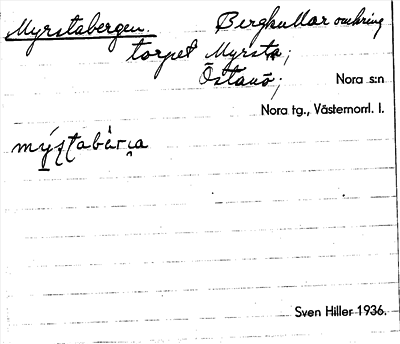 Myrstabergen. Bergkullar omkring
torpet Myrsta;
Östanö; Nora s:n
Nora tg., Västernorrl. l.
mýṣṭabær̀i̯a
Sven Hiller 1936.